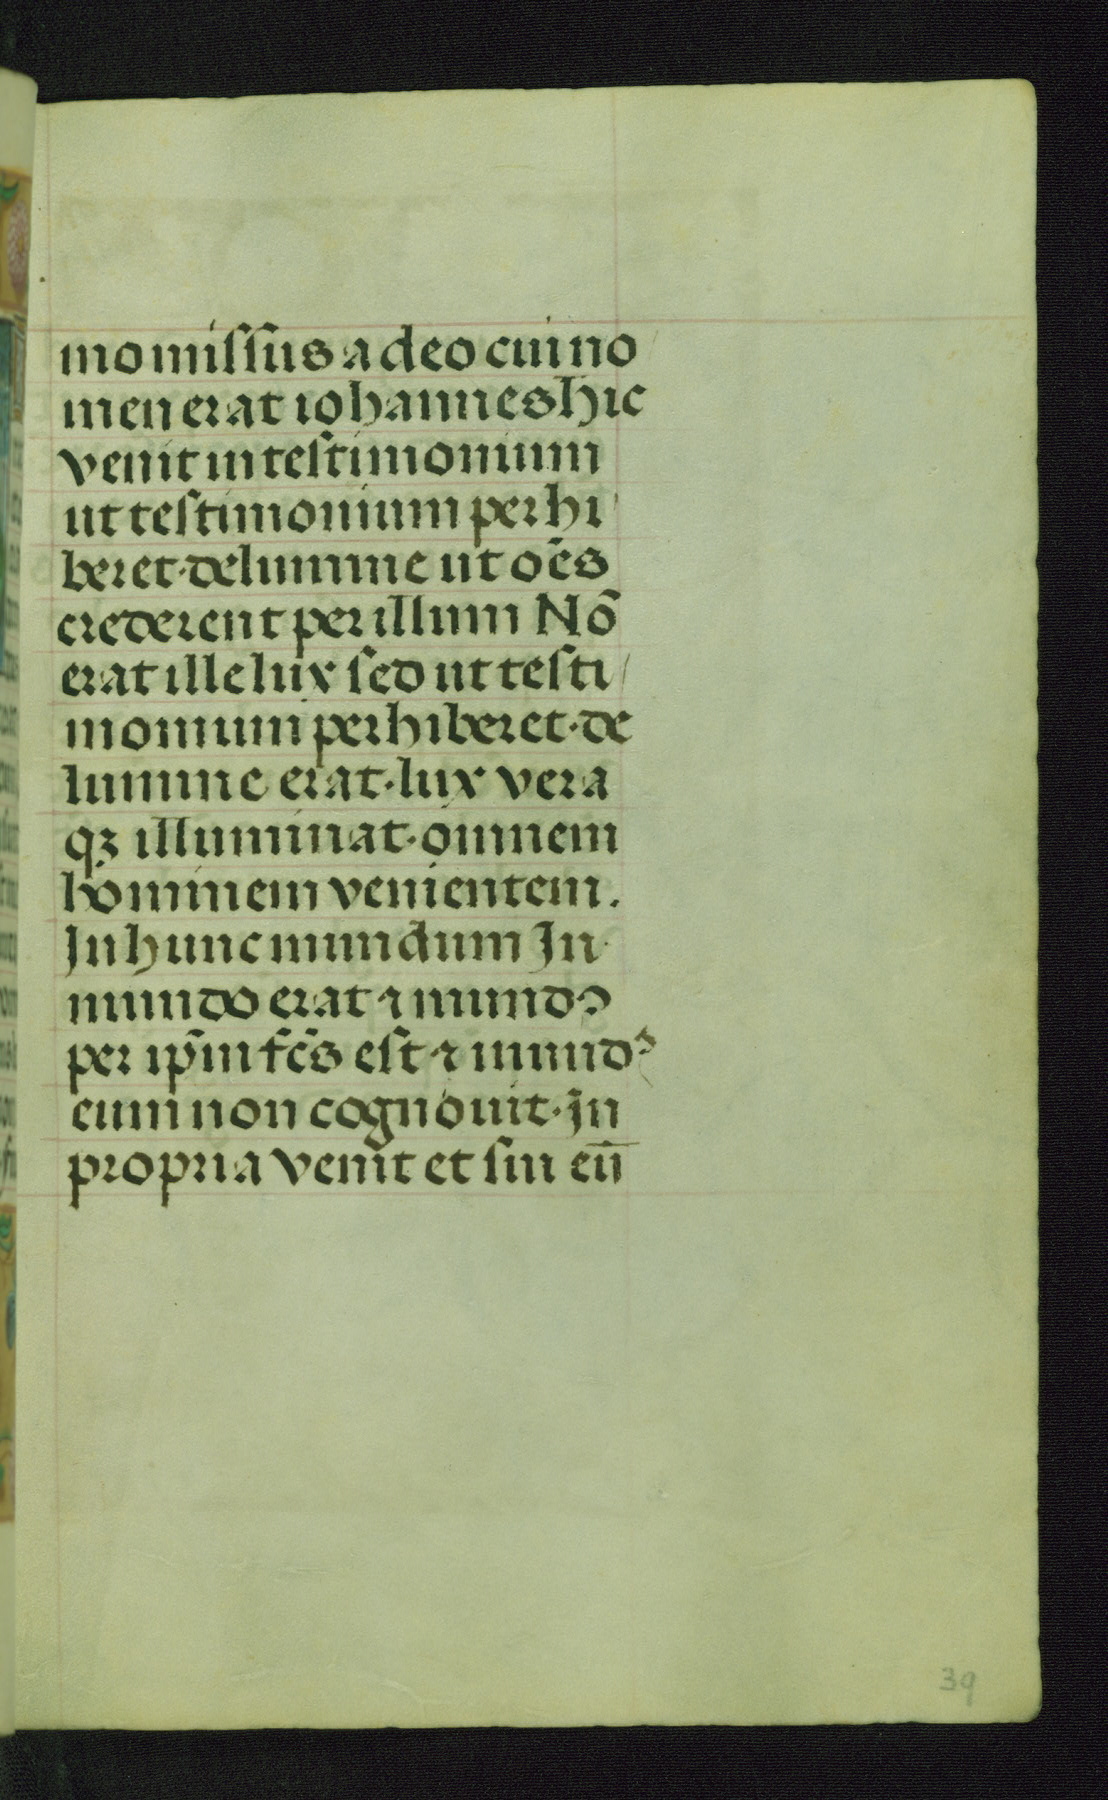 mo miſſus a deo cui no
men erat iohannes hic
venit in teſtimonium
ut teſtimonium perhi
beret·de lumine ut oēs
crederent per illum Nō
erat ille lux ſed ut teſti
monium perhiberet·de
lumine erat·lux vera
qʒ illuminat·omnem
hominem venientem.
In hunc mundum In
mundo erat ⁊ mundꝰ
per ip̄m fc̄s eſt ⁊ mundꝰ
eum non cognouit·in
propria venit et ſui eū
39